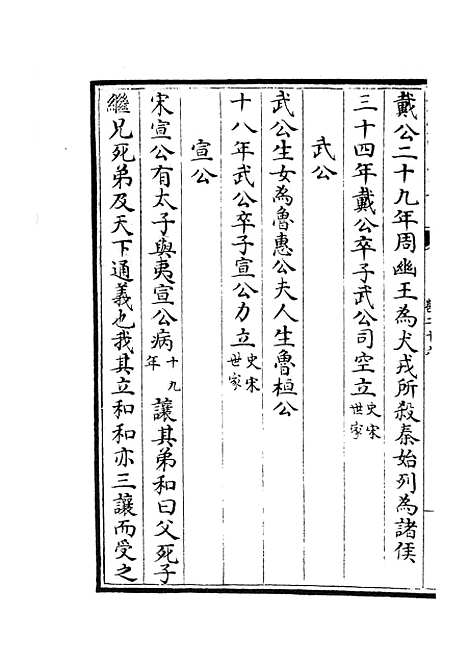 戴公二十九年周幽王為犬戎所殺秦始列為諸侯
三十四年戴公卒子武公司空立史宋世家
武公
武公生女為魯惠公夫人生魯桓公
十八年武公卒子宣公力立史宋世家
宣公
宋宣公有太子與夷宣公病十九年讓其弟和曰父死子
繼兄死弟及天下通義也我其立和和亦三讓而受之